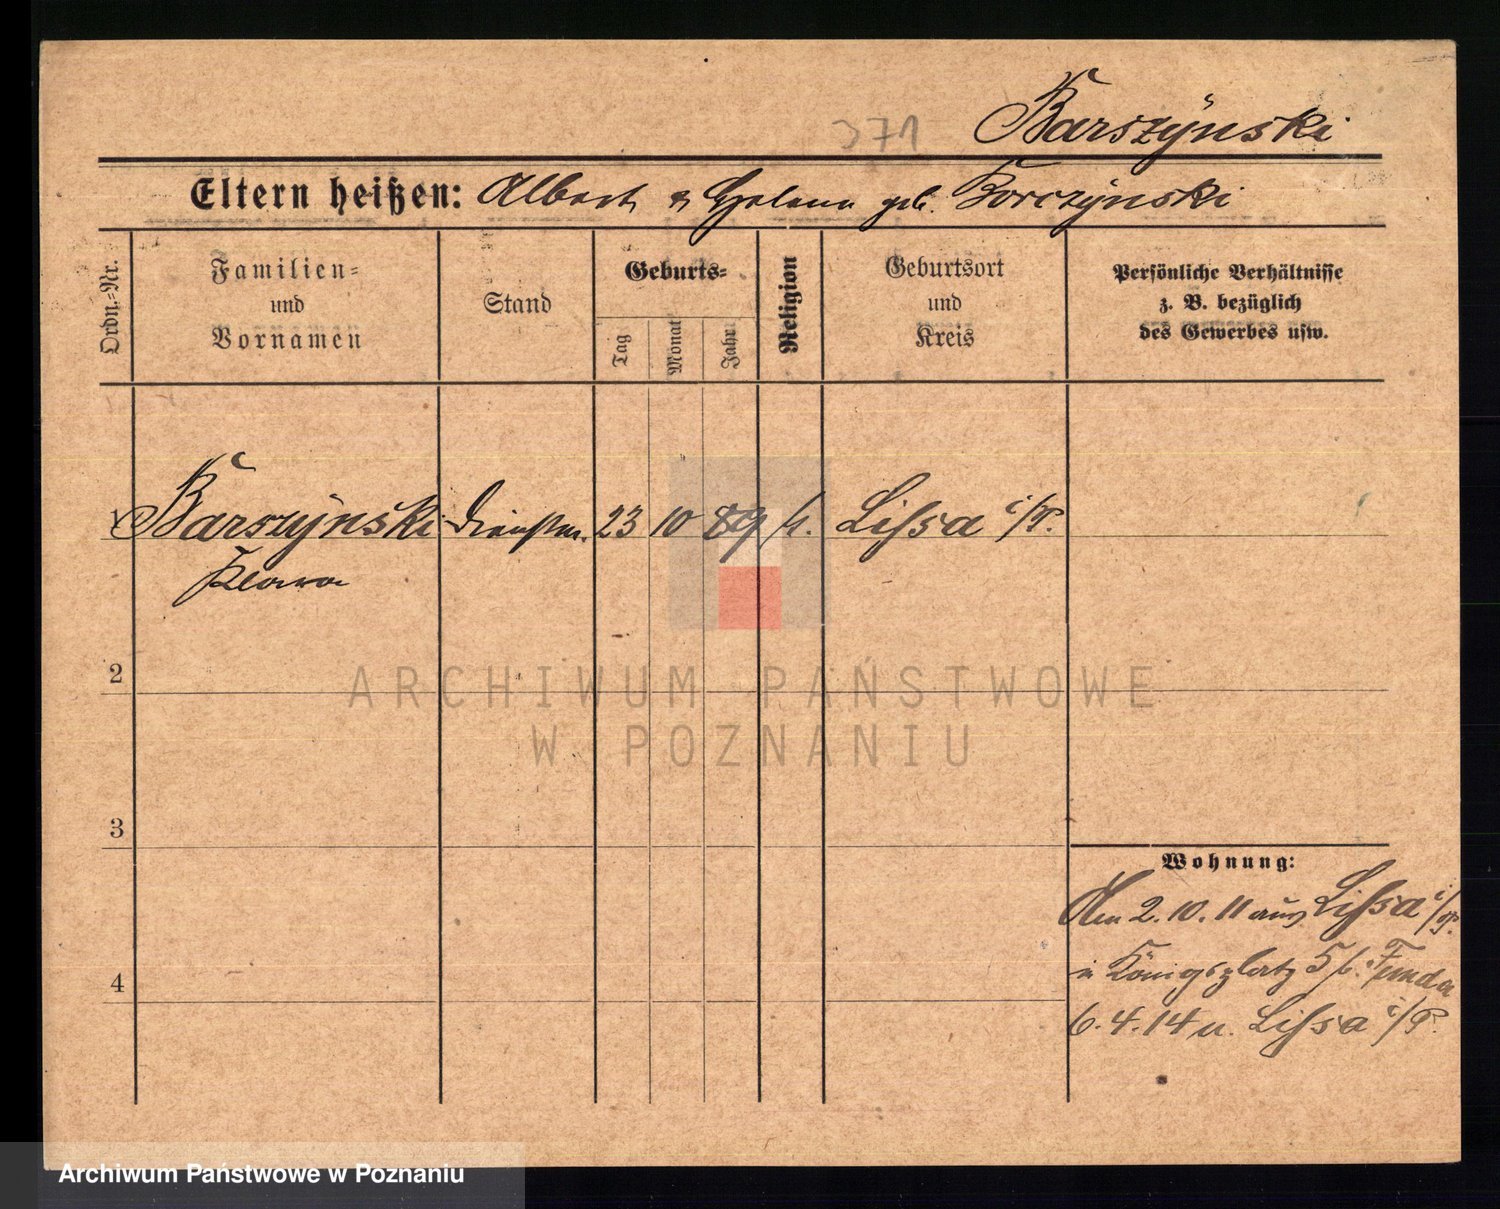 371
Barszÿnski
Eltern heißen: Albert & Helena geb. Korczÿnski
Ordn.-Nr.
Familien-
und
Vornamen
Stand
Geburts-
Tag
Monat
Jahr
Religion
Geburtsort
und
Kreis
Persönliche Verhältnisse
z. B. bezüglich
des Gewerbes usw.
1 Barszÿnski Dienstm. 23 10 89 k. Lissa i/P.
Klara
2
ARCHIWUM PAŃSTWOWE
W POZNANIU
3
Wohnung:
Am 2.10.11 aus Lissa i/P.
n Königsplatz 5 b.
4
6.4.14 n. Lissa i/P.
Archiwum Państwowe w Poznaniu